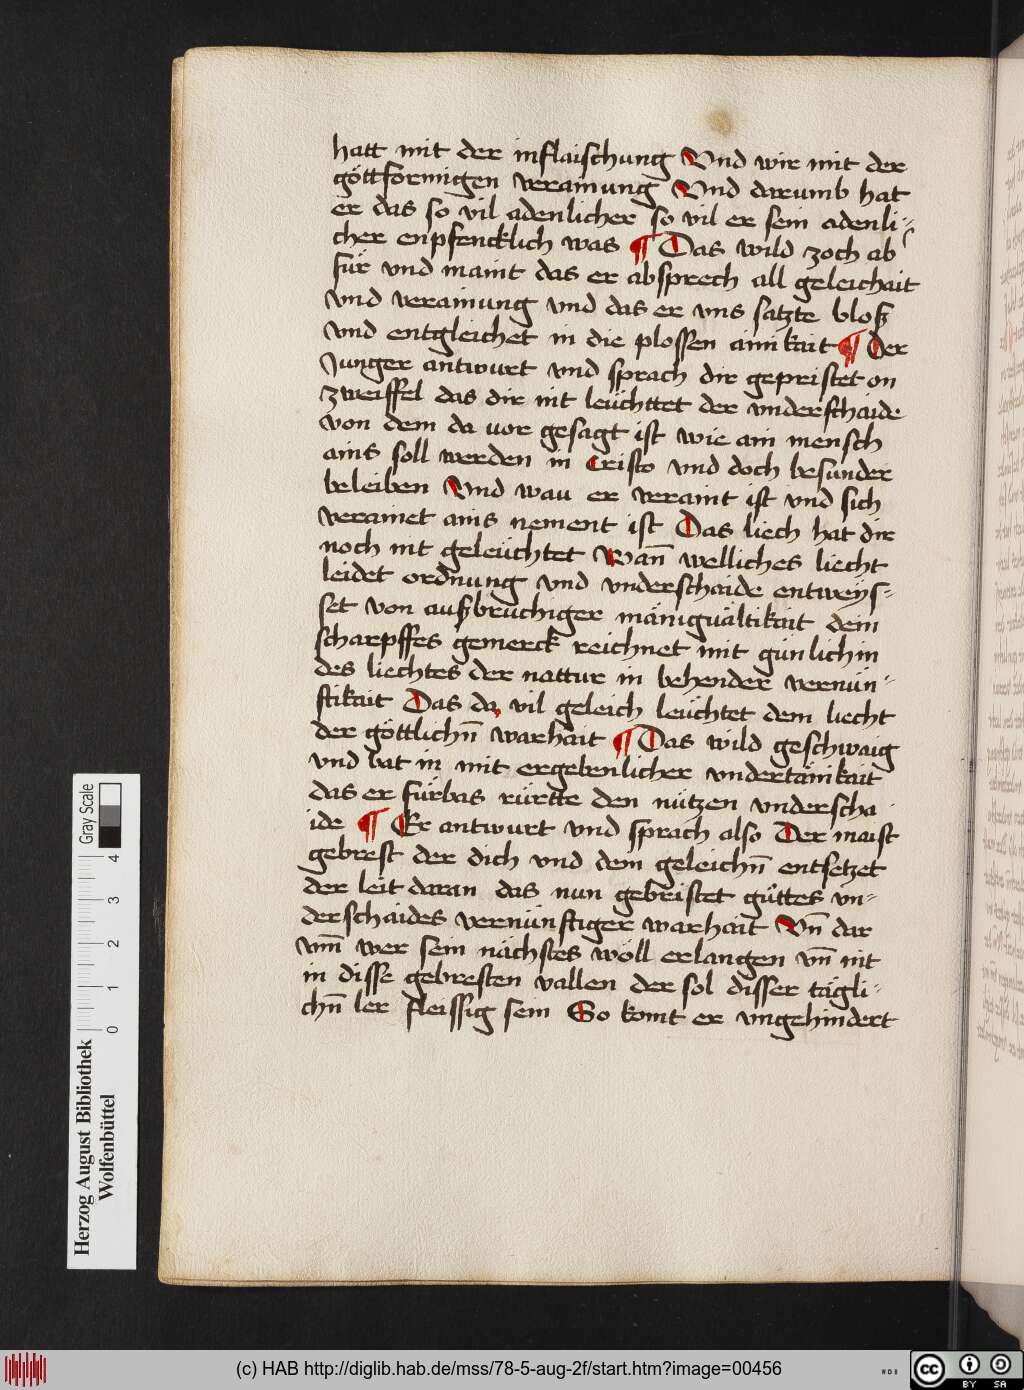 hatt mit der inflaischung Vnd wir mit der
göttformigen verainung Vnd darumb hat
er das so vil adenlicher so vil er sein adenli-
cher enpfencklich was ¶ Das wild zoch ab
für vnd maint das er absprech all geleichait
vnd verainung vnd das er vns satzte bloß
vnd entgleichet in die plossen ainikait ¶ Der
Junger antwurt vnd sprach dir gepristet on
zweiffel das dir nit leüchttet der vnderschaide
von dem da vor gesagt ist wie ain mensch
ains soll werden in Cristo vnd doch besunder
beleiben Vnd wau er veraint ist vnd sich
verainet ains nement ist Das liech hat dir
noch nit geleüchtet Wan̄ welliches liecht
leidet ordnung vnd vnderschaide entweÿs-
set von außbrüchiger mänigualtikait dem
scharpffes gemerck reichnet mit günlichin
des liechtes der nattur in behender vernün-
ftikait Das da vil geleich leüchtet dem liecht
der göttlichn̄ warhait ¶ Das wild geschwaig
vnd bat in mit ergebenlicher vndertänikait
das er fürbas rürtte den nützen vnderscha
ide ¶ Er antwurt vnd sprach also Der maist
gebrest der dich vnd dein geleichn̄ entsetzet
der leit daran das nun gebristet güttes vn-
derschaides vernünftiger warhait Vn̄ dar
vm̄ wer sein nächstes wöll erlangen vn̄ nit
in disse gebresten vallen der sol disser tägli-
chn̄ ler fleissig sein So komt er vngehindert
Gray Scale
4
3
2
1
0
Herzog August Bibliothek
Wolfenbüttel
(c) HAB http://diglib.hab.de/mss/78-5-aug-2f/start.htm?image=00456
WDB
CC BY SA